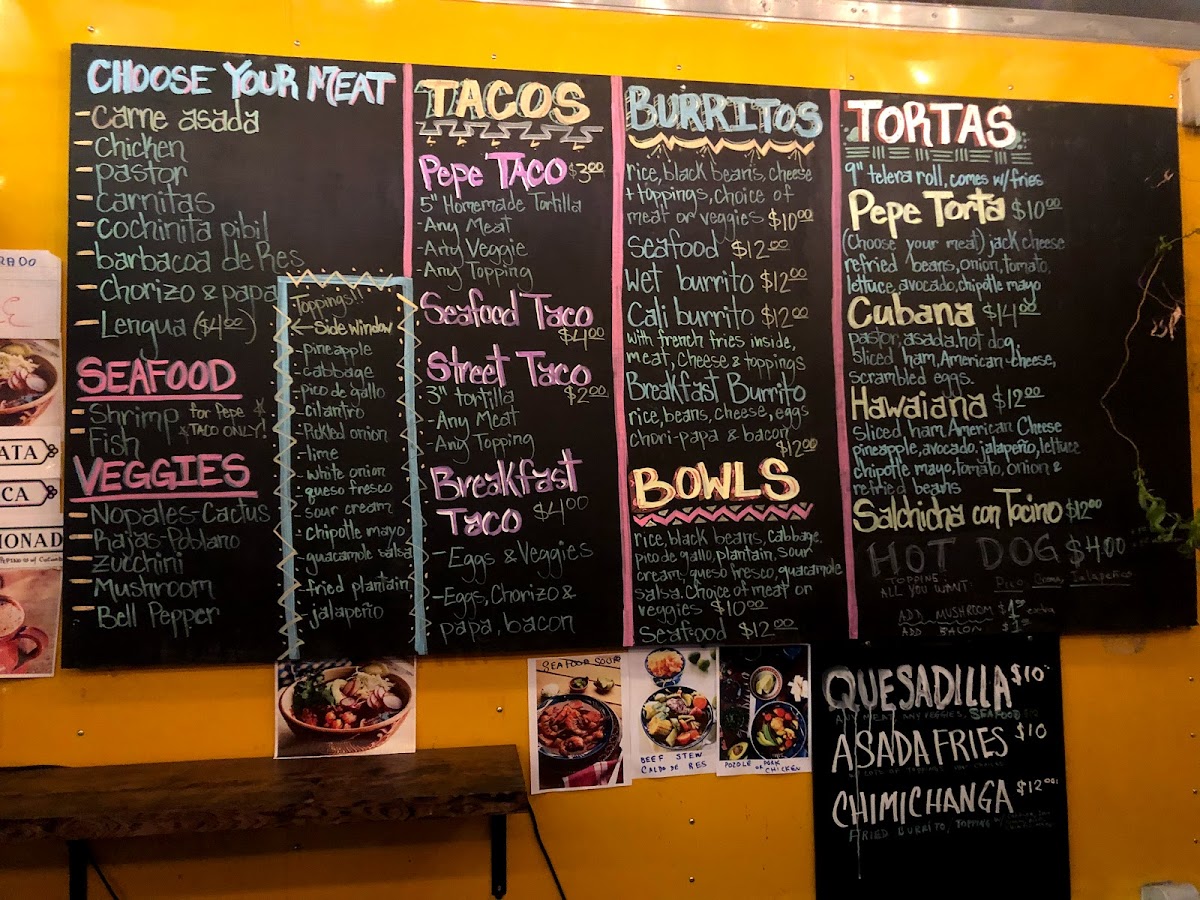 CHOOSE YOUR MEAT
- Carne asada
- Chicken
- pastor
- Carnitas
- Cochinita pibil
- barbacoa de Res
- Chorizo & papa
- Lengua ($4.00)
SEAFOOD
- Shrimp
- Fish
for Pepe
TACO ONLY!
VEGGIES
- Nopales-Cactus
- Rajas-Poblano
- Zucchini
- Mushroom
- Bell Pepper
Toppings!!
← Side window
- pineapple
- cabbage
- pico de gallo
- cilantro
- Pickled onion
- lime
- white onion
- queso fresco
- sour cream
- chipotle mayo
- guacamole salsa
- fried plantain
- jalapeño
TACOS
Pepe TACO $3.00
5" Homemade Tortilla
- Any Meat
- Any Veggie
- Any Topping
Seafood Taco
$4.00
Street Taco
3" tortilla $2.00
- Any Meat
- Any Topping
Breakfast
Taco $4.00
- Eggs & Veggies
- Eggs, Chorizo &
papa, bacon
BURRITOS
rice, black beans, cheese
+ toppings, choice of
meat or veggies $10.00
Seafood $12.00
Wet burrito $12.00
Cali burrito $12.00
with french fries inside,
meat, cheese & toppings
Breakfast Burrito
rice, beans, cheese, eggs
chori-papa & bacon
$12.00
BOWLS
rice, black beans, cabbage,
pico de gallo, plantain, sour
cream, queso fresco, guacamole
salsa. Choice of meat or
veggies $10.00
Seafood $12.00
TORTAS
9" telera roll, comes w/fries
Pepe Torta $10.00
(Choose your meat) jack cheese
refried beans, onion, tomato,
lettuce, avocado, chipotle mayo
Cubana $14.00
pastor, asada, hot dog,
sliced ham, American cheese,
scrambled eggs.
Hawaiana $12.00
Sliced ham, American Cheese
pineapple, avocado, jalapeño, lettuce
chipotle mayo, tomato, onion &
refried beans
Salchicha con Tocino $12.00
HOT DOG $4.00
TOPPING
ALL YOU WANT:
ADD MUSHROOM $1 extra
ADD
QUESADILLA $10
ANY MEAT, ANY VEGGIES, SEAFOOD
ASADA FRIES $10
CHIMICHANGA $12.00
FRIED BURRITO, TOPPING
SEAFOOD SOUP
BEEF STEW
CALDO DE RES
POZOLE PORK
OR CHICKEN
ATA
CA
MONAD